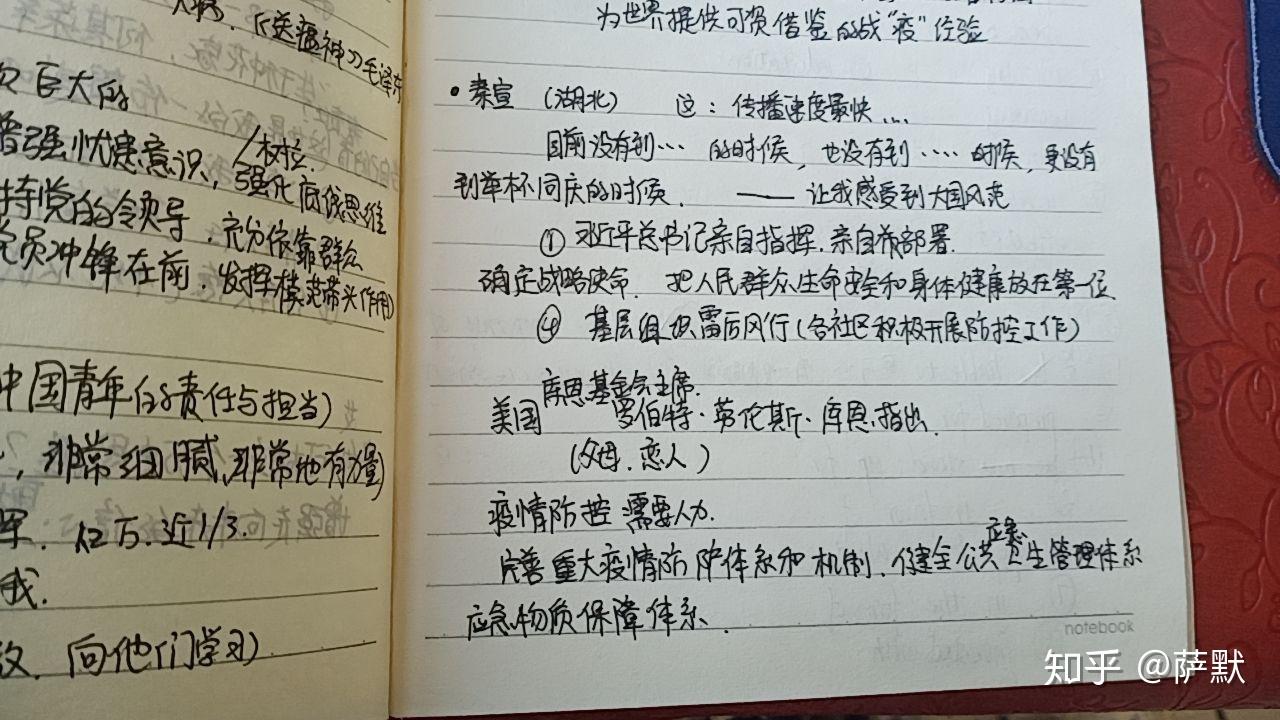 《送瘟神》毛泽东
巨大的
增强忧患意识, 强化底线思维
持党的领导, 充分依靠群众
党员冲锋在前, 发挥模范带头作用)
中国青年的责任与担当)
, 非常细腻, 非常地有力量)
军. 亿万. 近1/3.
我.
. 向他们学习)
为世界提供可资借鉴的战"疫"经验
• 秦宣 (湖北) 这: 传播速度最快...
目前没有到... 的时候, 也没有到 .... 时候, 更没有
到举杯同庆的时候. —— 让我感受到大国风范
① 习近平总书记亲自指挥. 亲自部署.
确定战略使命. 把人民群众生命安全和身体健康放在第一位.
④ 基层组织雷厉风行(各社区积极开展防控工作)
库恩基金会主席.
美国 罗伯特·劳伦斯·库恩指出.
(父母. 恋人)
疫情防控 需要人力.
完善重大疫情防护体系和机制. 健全公共应急卫生管理体系
应急物质保障体系.
notebook
知乎 @萨默